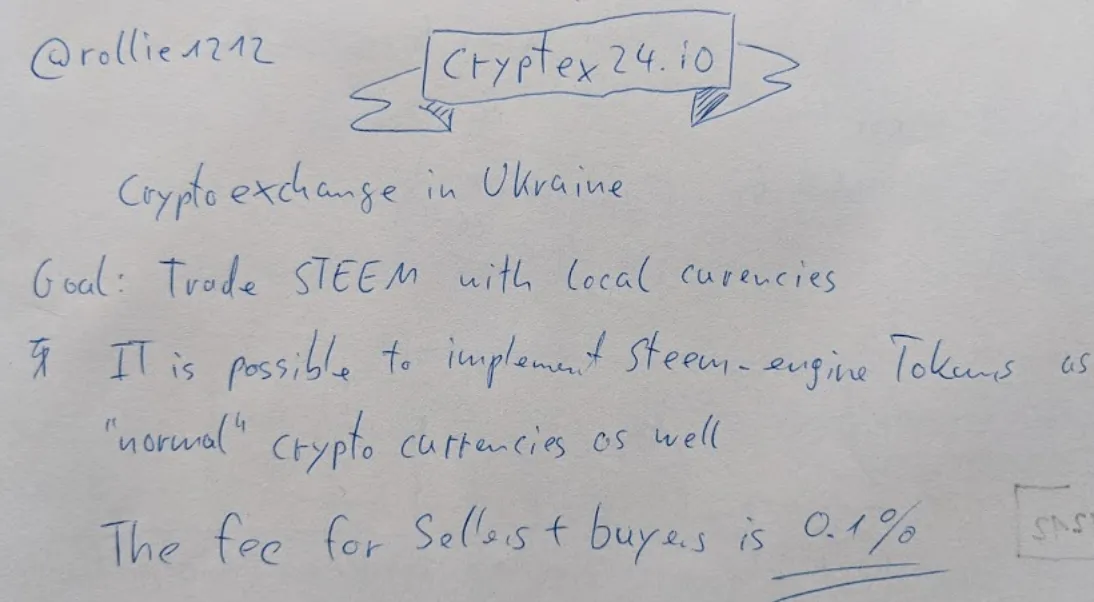 @rollie1212
Cryptex24.io
Crypto exchange in Ukraine
Goal: Trade STEEM with local curencies
IT is possible to implement Steem-engine Tokens as
"normal" crypto currencies as well
The fee for Sellers + buyers is 0.1%